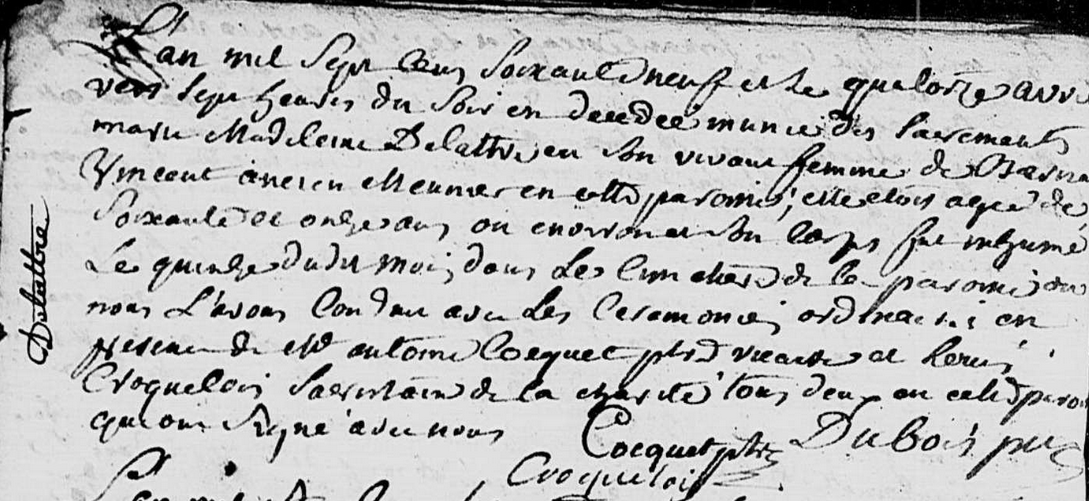 L'an mil Sept Cens Soixante neuf et le quatorze avri
vers Sept heures du Soir est decedée munie des Sacrements
marie Madeleine Delattre en Son vivant femme de Barna
Vincent ancien Meunier en cette paroisse, elle etoit agée de
Soixante et onze ans ou environ et Son Corps fut inhumé
Le quinze dudit mois dans Le Cimetiere de la paroisse ou
nous L'avons Conduit avec Les Ceremonies ordinaires en
presence de Me antoine Cocquet ptre vicaire et
Croquelois Sacristain de la charité tous deux en cette paroi
qui ont Signé avec nous
Delattre
Cocquet ptre DuBois
Croquelois
L'an mil